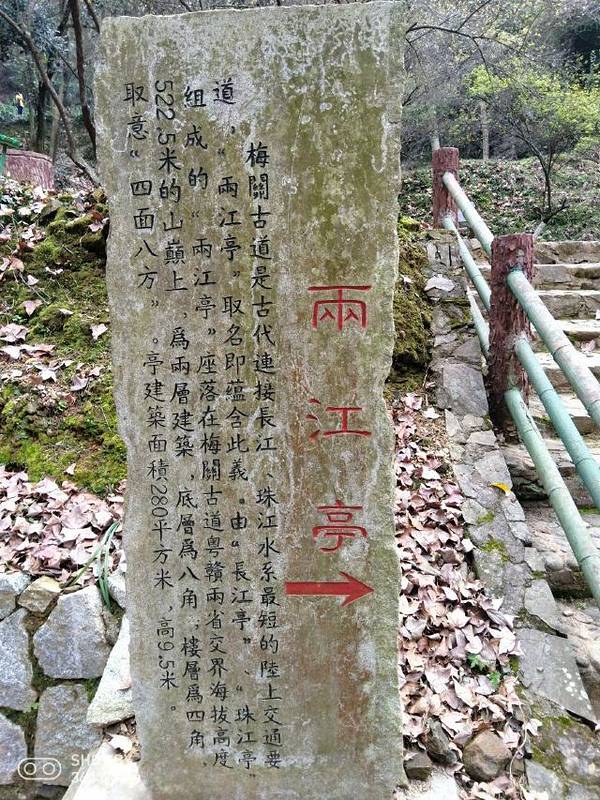 兩江亭
梅關古道是古代連接長江、珠江水系最短的陸上交通要
道，“兩江亭”取名即蘊含此義。由“長江亭”、“珠江亭”
組成的“兩江亭”座落在梅關古道粵贛兩省交界海拔高度
522.5米的山巔上，爲兩層建築，底層爲八角，樓層爲四角，
取意“四面八方”。亭建築面積280平方米，高9.5米。